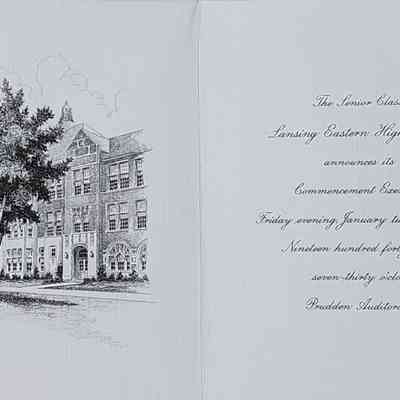 The Senior Class
Lansing Eastern High
announces its
Commencement
Friday evening, January
Nineteen hundred
seven-thirty
Prudden